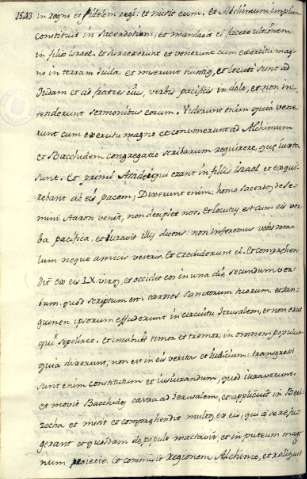 1583 in regno et fidelem regi: et misit eum. et Alchimum impium
constituit in sacerdotium, et mandavit ei facere ultionem
in filios israel. et surrexerunt et venerunt cum exercitu mag
no in terram iuda: et miserunt nuntios, et locuti sunt ad
Iudam et ad fratres eius, verbis pacificis in dolo, et non in
tenderunt sermonibus eorum. Viderunt enim quia vene
runt cum exercitu magno et convenerunt ad Alchimum
et Bacchidem congregatio scribarum requirere, quae iusta
sunt. Et primi Assidei qui erant in filiis israel et exqui
rebant ab eis pacem; Dixerunt enim: homo sacerdos de se
mini Aaron venit, non decipiet nos, et locutus est cum eis ver
ba pacifica, et iuravit illis dicens: non inferemus vobis ma
lum neque amicis vestris. et crediderunt ei. Et comprehen
dit ex eis LX viros, et occidit eos in una die secundum ver
bum, quod scriptum est: carnes sanctorum tuorum, et san
guinem ipsorum effuderunt in circuitu Jerusalem, et non erat
qui sepeliret. et incubuit timor et tremor in omnem populum
quia dixerunt, non est in eis veritas et iudicium: transgressi
sunt enim constitutum et iusiurandum, quod iuraverunt.
et movit Bacchides castra ab Jerusalem, et applicuit in Bet
zecha et misit et comprehendit multos ex eis, qui a se refu
gerant et quosdam de populo mactavit, et in puteum mag
num proiecit. et commisit regionem Alchimo, et reliquit